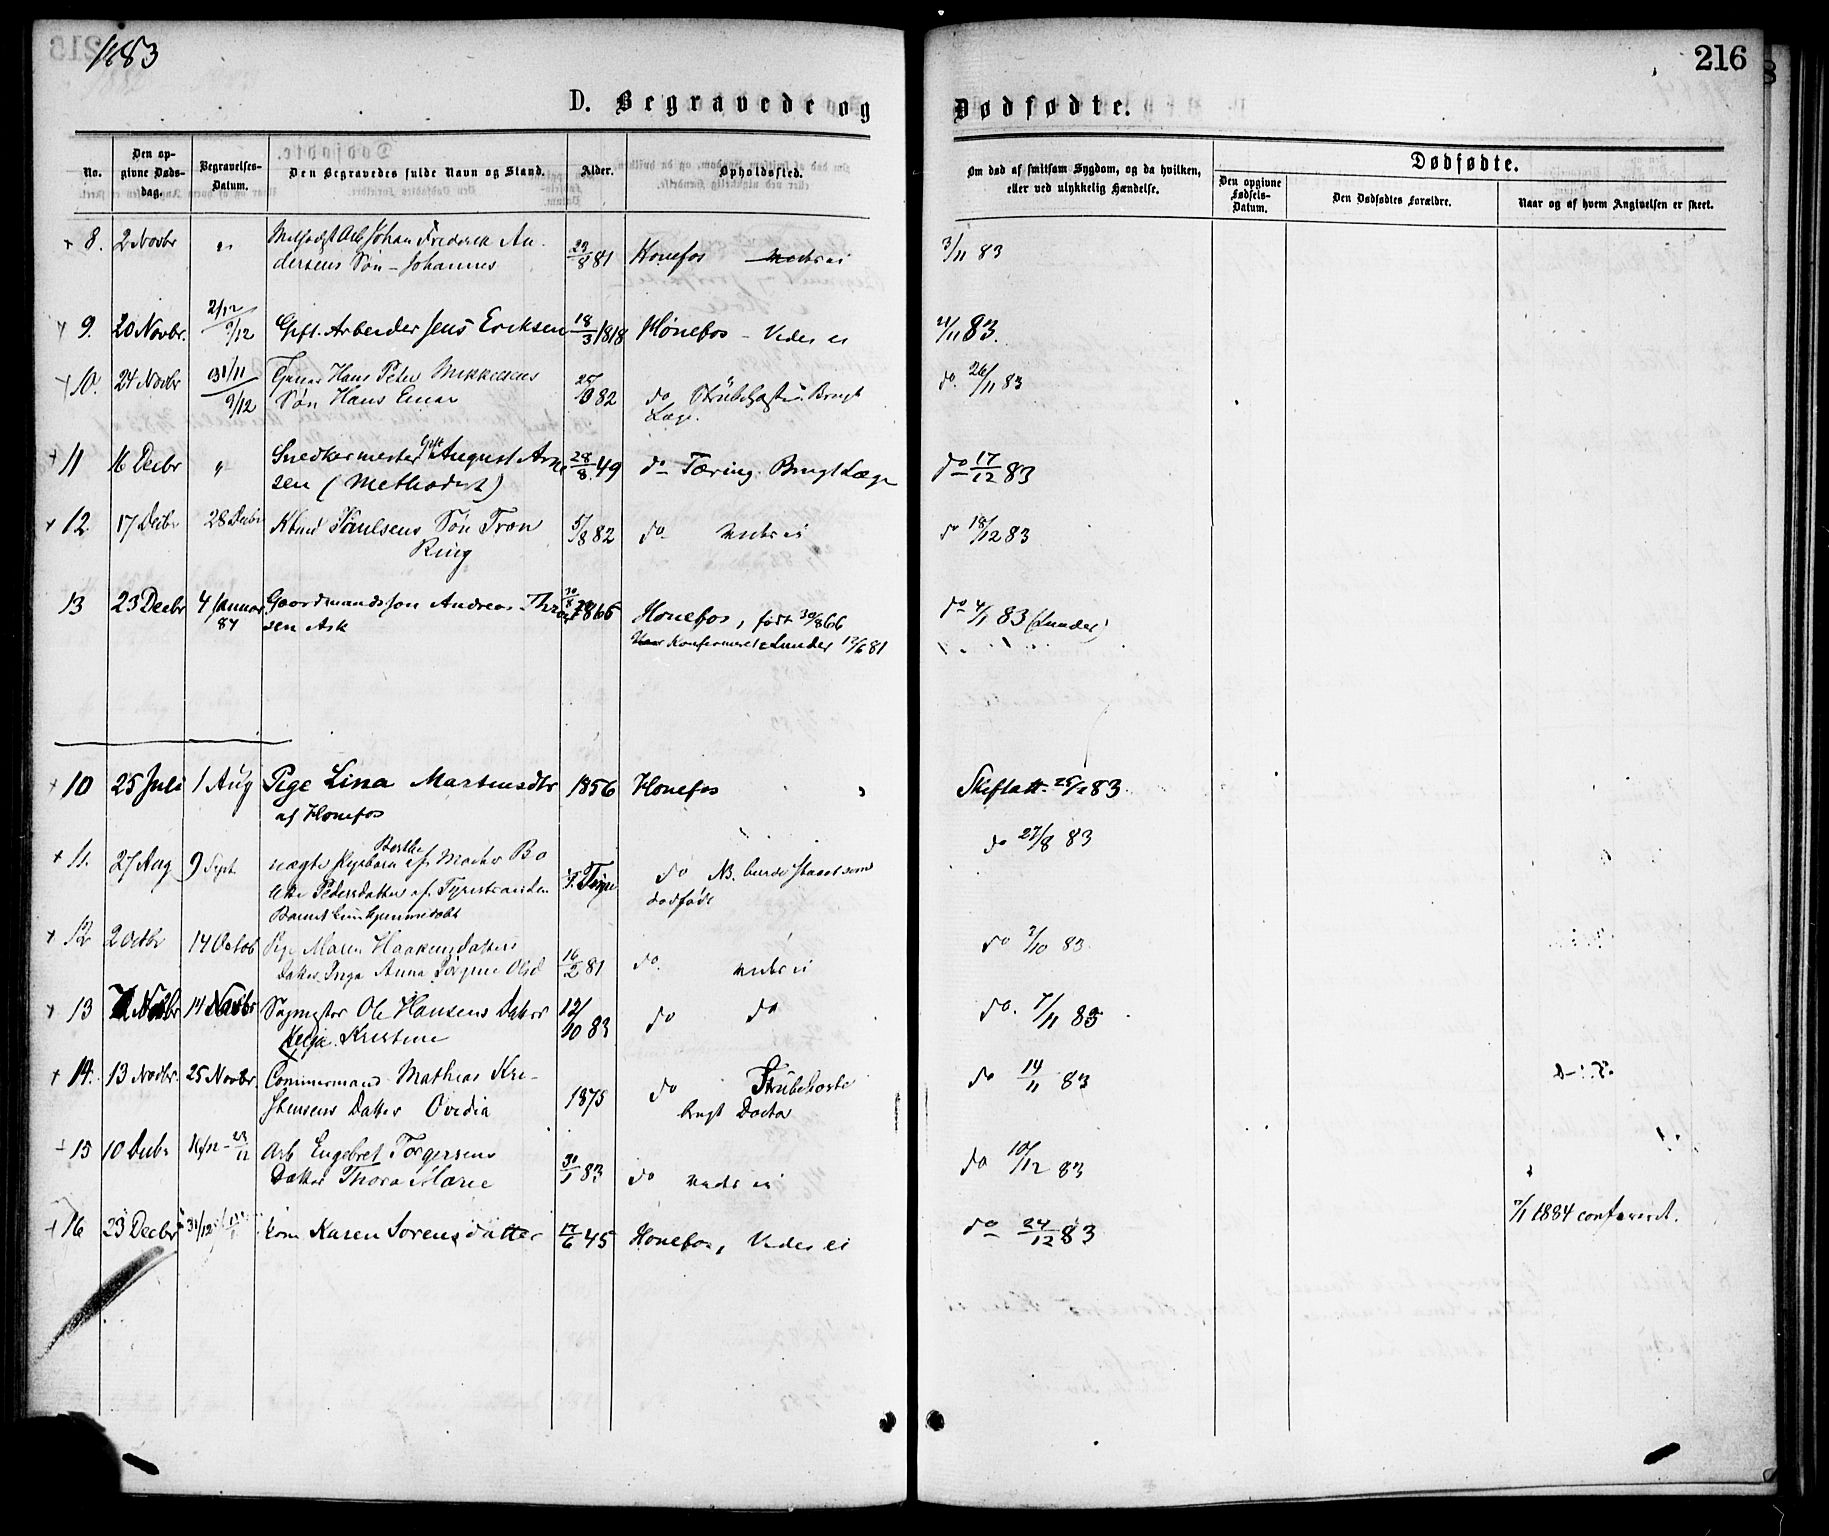 1883
216
D. Begravede og Dødfødte.
No.
Den opgivne Dødsdag.
Begravelses-Datum.
Den Begravedes fulde Navn og Stand.
Alder.
Opholdssted.
Om død af smitsom Sygdom, og da hvilken, eller ved ulykkelig Hændelse.
Dødfødte.
Den opgivne Fødsels-Datum.
Den Dødfødtes Forældre.
Naar og af hvem Angivelsen er skeet.
+ 8. 2 Novbr " Johan Frederik An- 29/8 81 Honefos ei 3/11 83
dersens Søn - Johannes
+ 9. 20 Novbr. 2/12 9/12 Gift. Arbeider Jens Eriksen 18/3 1818 Hønefos - Vides ei 21/11 83.
+ 10. 24 Novbr 9/12 Hans Peter Mikkelsens 82 do Brugt do. 26/11 83
Søn Hans Einar Læge.
+ 11 16 Decbr " Snedkermester Gift August Arne 28/8 49 do Tæring. Brugt Læge do 17/12 83
sen (Methodist)
+ 12 17 Decbr 28 Decbr Knud Paulsens Søn Tron 5/8 82 do vides ei do 18/12 83
Ring
13 23 Decbr 4 Januar 84 Gaardmandssøn Andreas 1866 Honefos, født 30/8 66 do 4/1 83 (Lunder)
sen Ask Konfirmeret Lunder 81
+ 10 25 Juli 1 Aug Pige Lina Martinsdtr 1856 Honefos " Skiftatt. 83
af Honefos
+ 11. 27 Aug 9 Sept. uægte Pigebarn Berthe af Moder Bo do NB. burde staaet som do 27/8 83
lette Pedersdatter af Tyristranden dødfødt
Barnet hjemmedøbt
+ 12 2 Octbr 14 Octob Pige Maren Haakensdatters 16/2 81 do. vides ei do 3/10 83
Datter Inga Anna Olsd
+ 13 Novbr 14 Novbr Sagmester Ole Hansens Datter 12/10 83 do do do. 7/11 83
Kristine
+ 14. 13 Novbr. 25 Novbr. Mathias Kri- 1875 do Strubehoste do 14/11 83
stensens Datter Ovidia brugt Doctor
+ 15 10 Decbr Arb Engebret Torgersens 83 do vides ei do 10/12 83
Datter Thora Marie
+ 16 23 Decbr 31/12 Karen Sorensdatter 17/6 45 Honefos, Vides ei do 24/12 83 7/1 1884 confereret.